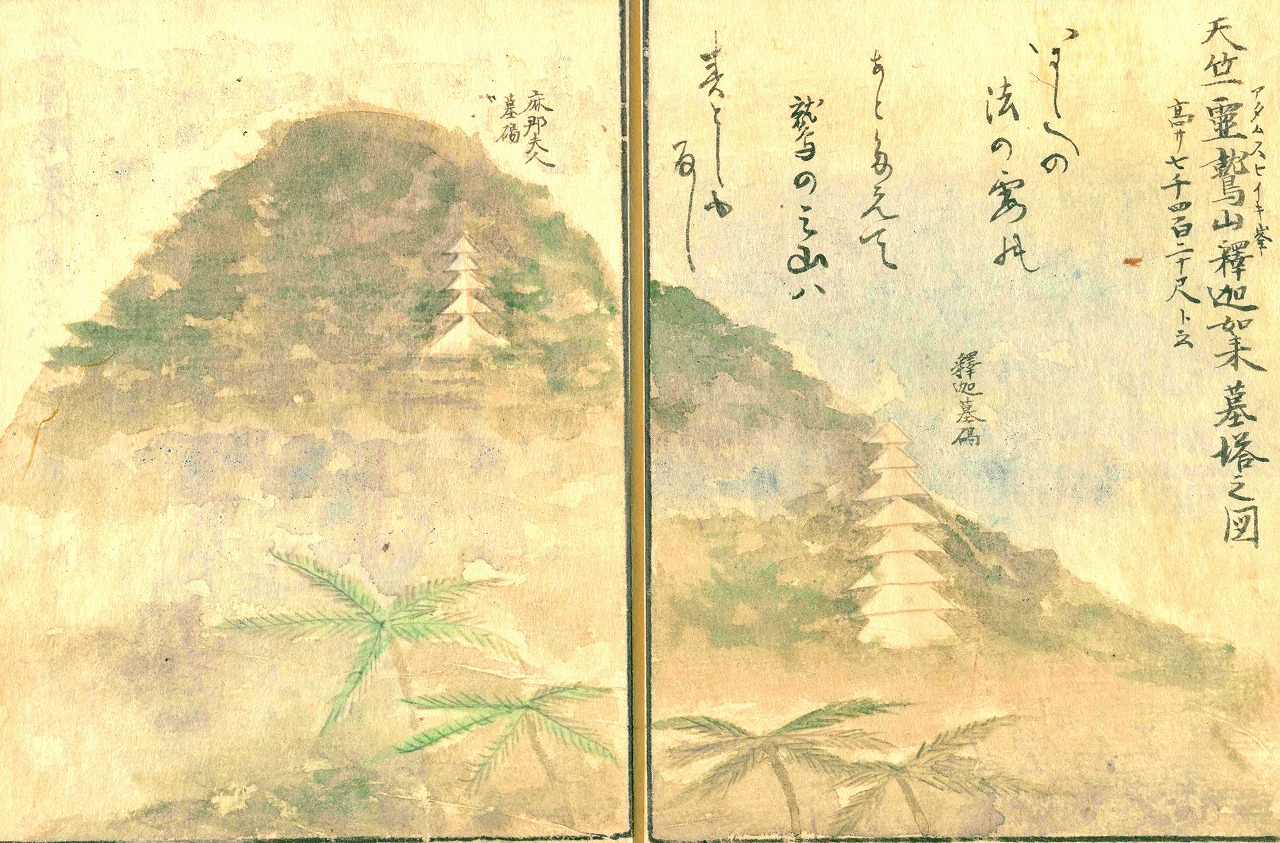 天竺霊鷲山釋迦如来墓塔之図
アタムスヒイキ峯
高サ七千四百二十尺ト云
いにしへの
法の
あと多えて
鷲の山ハ
釋迦墓碣
麻那夫人
墓碣